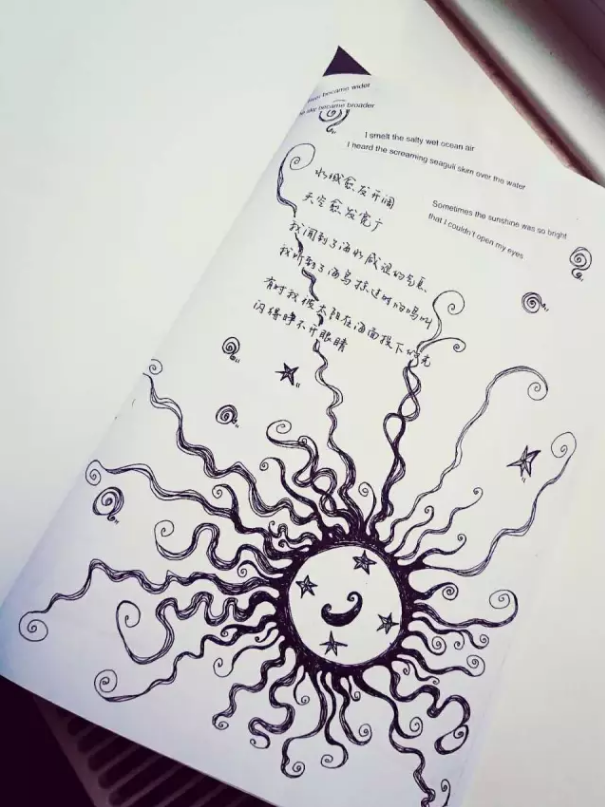 became wider
became broader
I smelt the salty wet ocean air
I heard the screaming seagull skim over the water
Sometimes the sunshine was so bright
that I couldn't open my eyes
水域愈发开阔
天空愈发宽广
我闻到了海水咸湿的气息
我听到了海鸟掠过时的鸣叫
有时我被太阳在海面投下的光
闪得睁不开眼睛